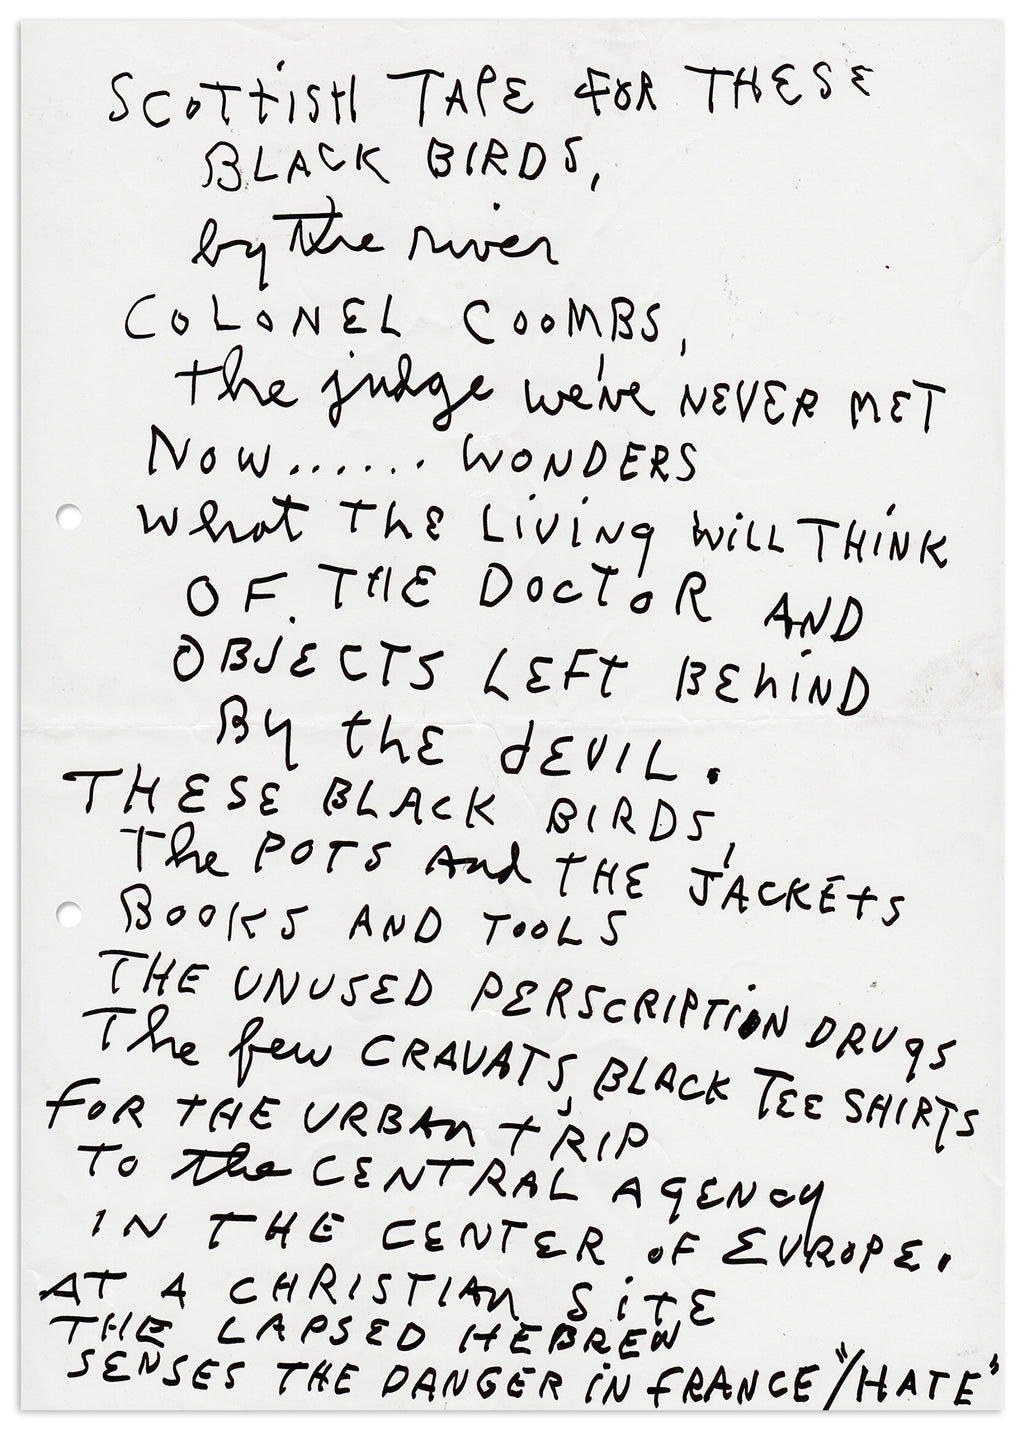 SCOTTISH TAPE FOR THESE
BLACK BIRDS,
by the river
COLONEL COOMBS,
the judge we've NEVER MET
NOW...... WONDERS
what THE LIVING WILL THINK
OF THE DOCTOR AND
OBJECTS LEFT BEHIND
By the dEVIL.
THESE BLACK BIRDS,
The POTS And THE JACKETS
BOOKS AND TOOLS
THE UNUSED PERSCRIPTION DRUGS
The few CRAVATS, BLACK TEE SHIRTS
FOR THE URBAN TRIP
TO the CENTRAL AGENCY
IN THE CENTER OF EUROPE.
AT A CHRISTIAN SITE
THE LAPSED HEBREW
SENSES THE DANGER IN FRANCE "/HATE"